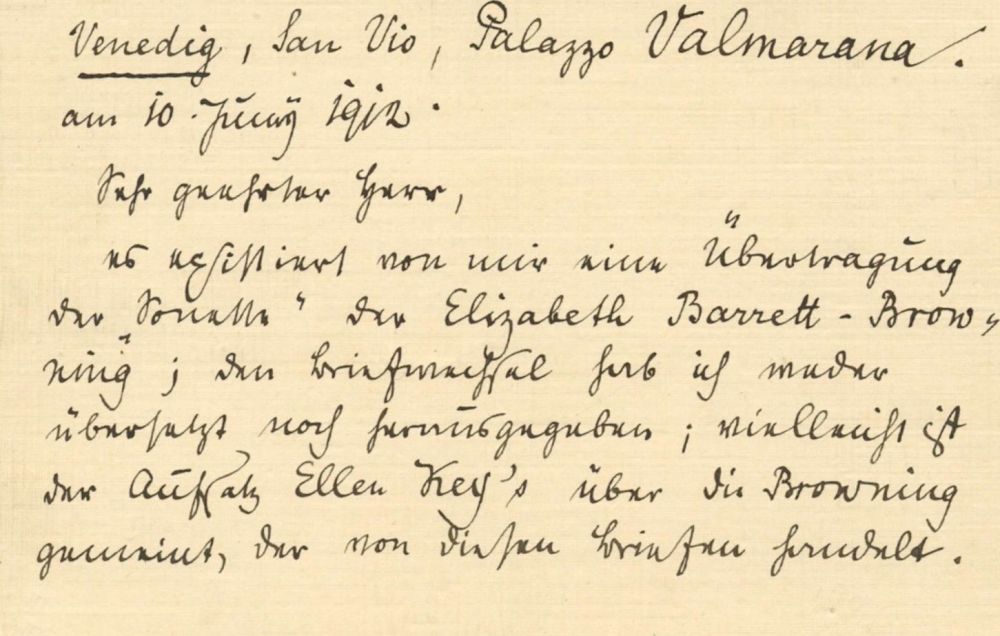 Venedig, San Vio, Palazzo Valmarana.
am 10. Juny 1912.
Sehr geehrter Herr,
es exsistiert von mir eine Übertragung
der "Sonette" der Elizabeth Barrett-Brow-
ning"; den Briefwechsel hab ich weder
übersetzt noch herausgegeben; vielleicht ist
der Aufsatz Ellen Key's über die Browning
gemeint, der von diesen Briefen handelt.